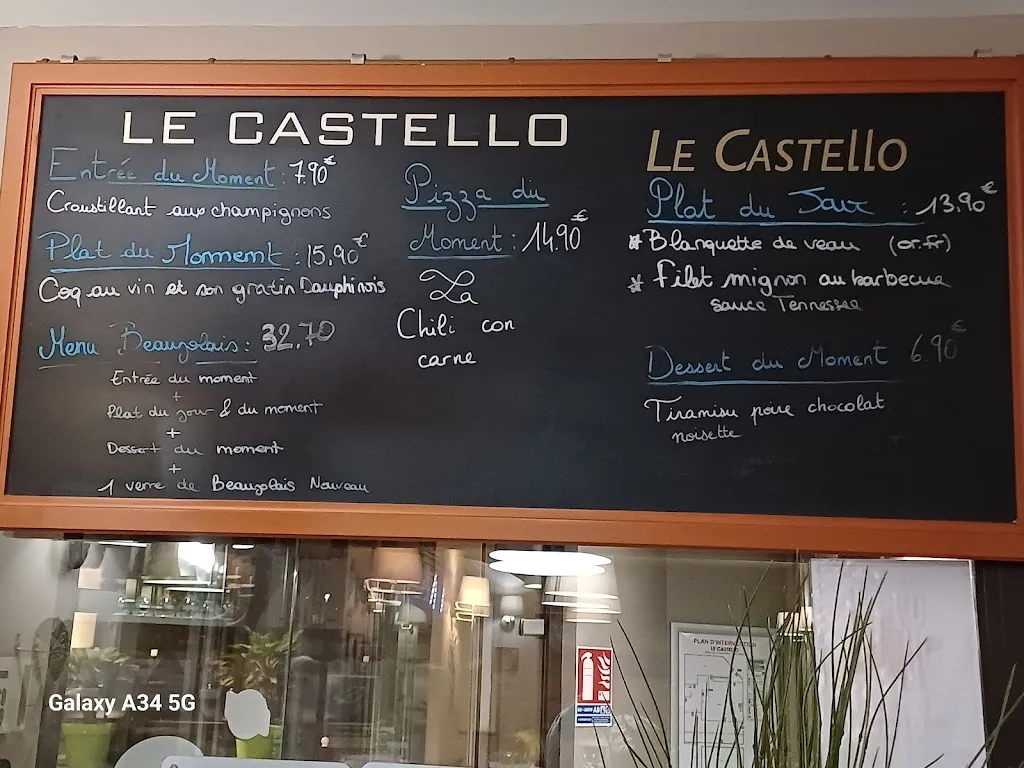 LE CASTELLO
Entrée du Moment : 7.90€
Croustillant aux champignons
Plat du Momment : 15,90€
Coq au vin et son gratin Dauphinois
Menu Beaujolais : 32,70
Entrée du moment
+
Plat du jour & du moment
+
Dessert du moment
+
1 verre de Beaujolais Nouveau
Pizza du
Moment : 14.90€
La
Chili con
carne
LE CASTEllo
Plat du Jour : 13,90€
* Blanquette de veau (or.fr)
* Filet mignon au barbecue
sauce Tennessee
Dessert du Moment 6.90€
Tiramisu poire chocolat
noisette
PLAN D'INTER
LE CASTELLO
Galaxy A34 5G